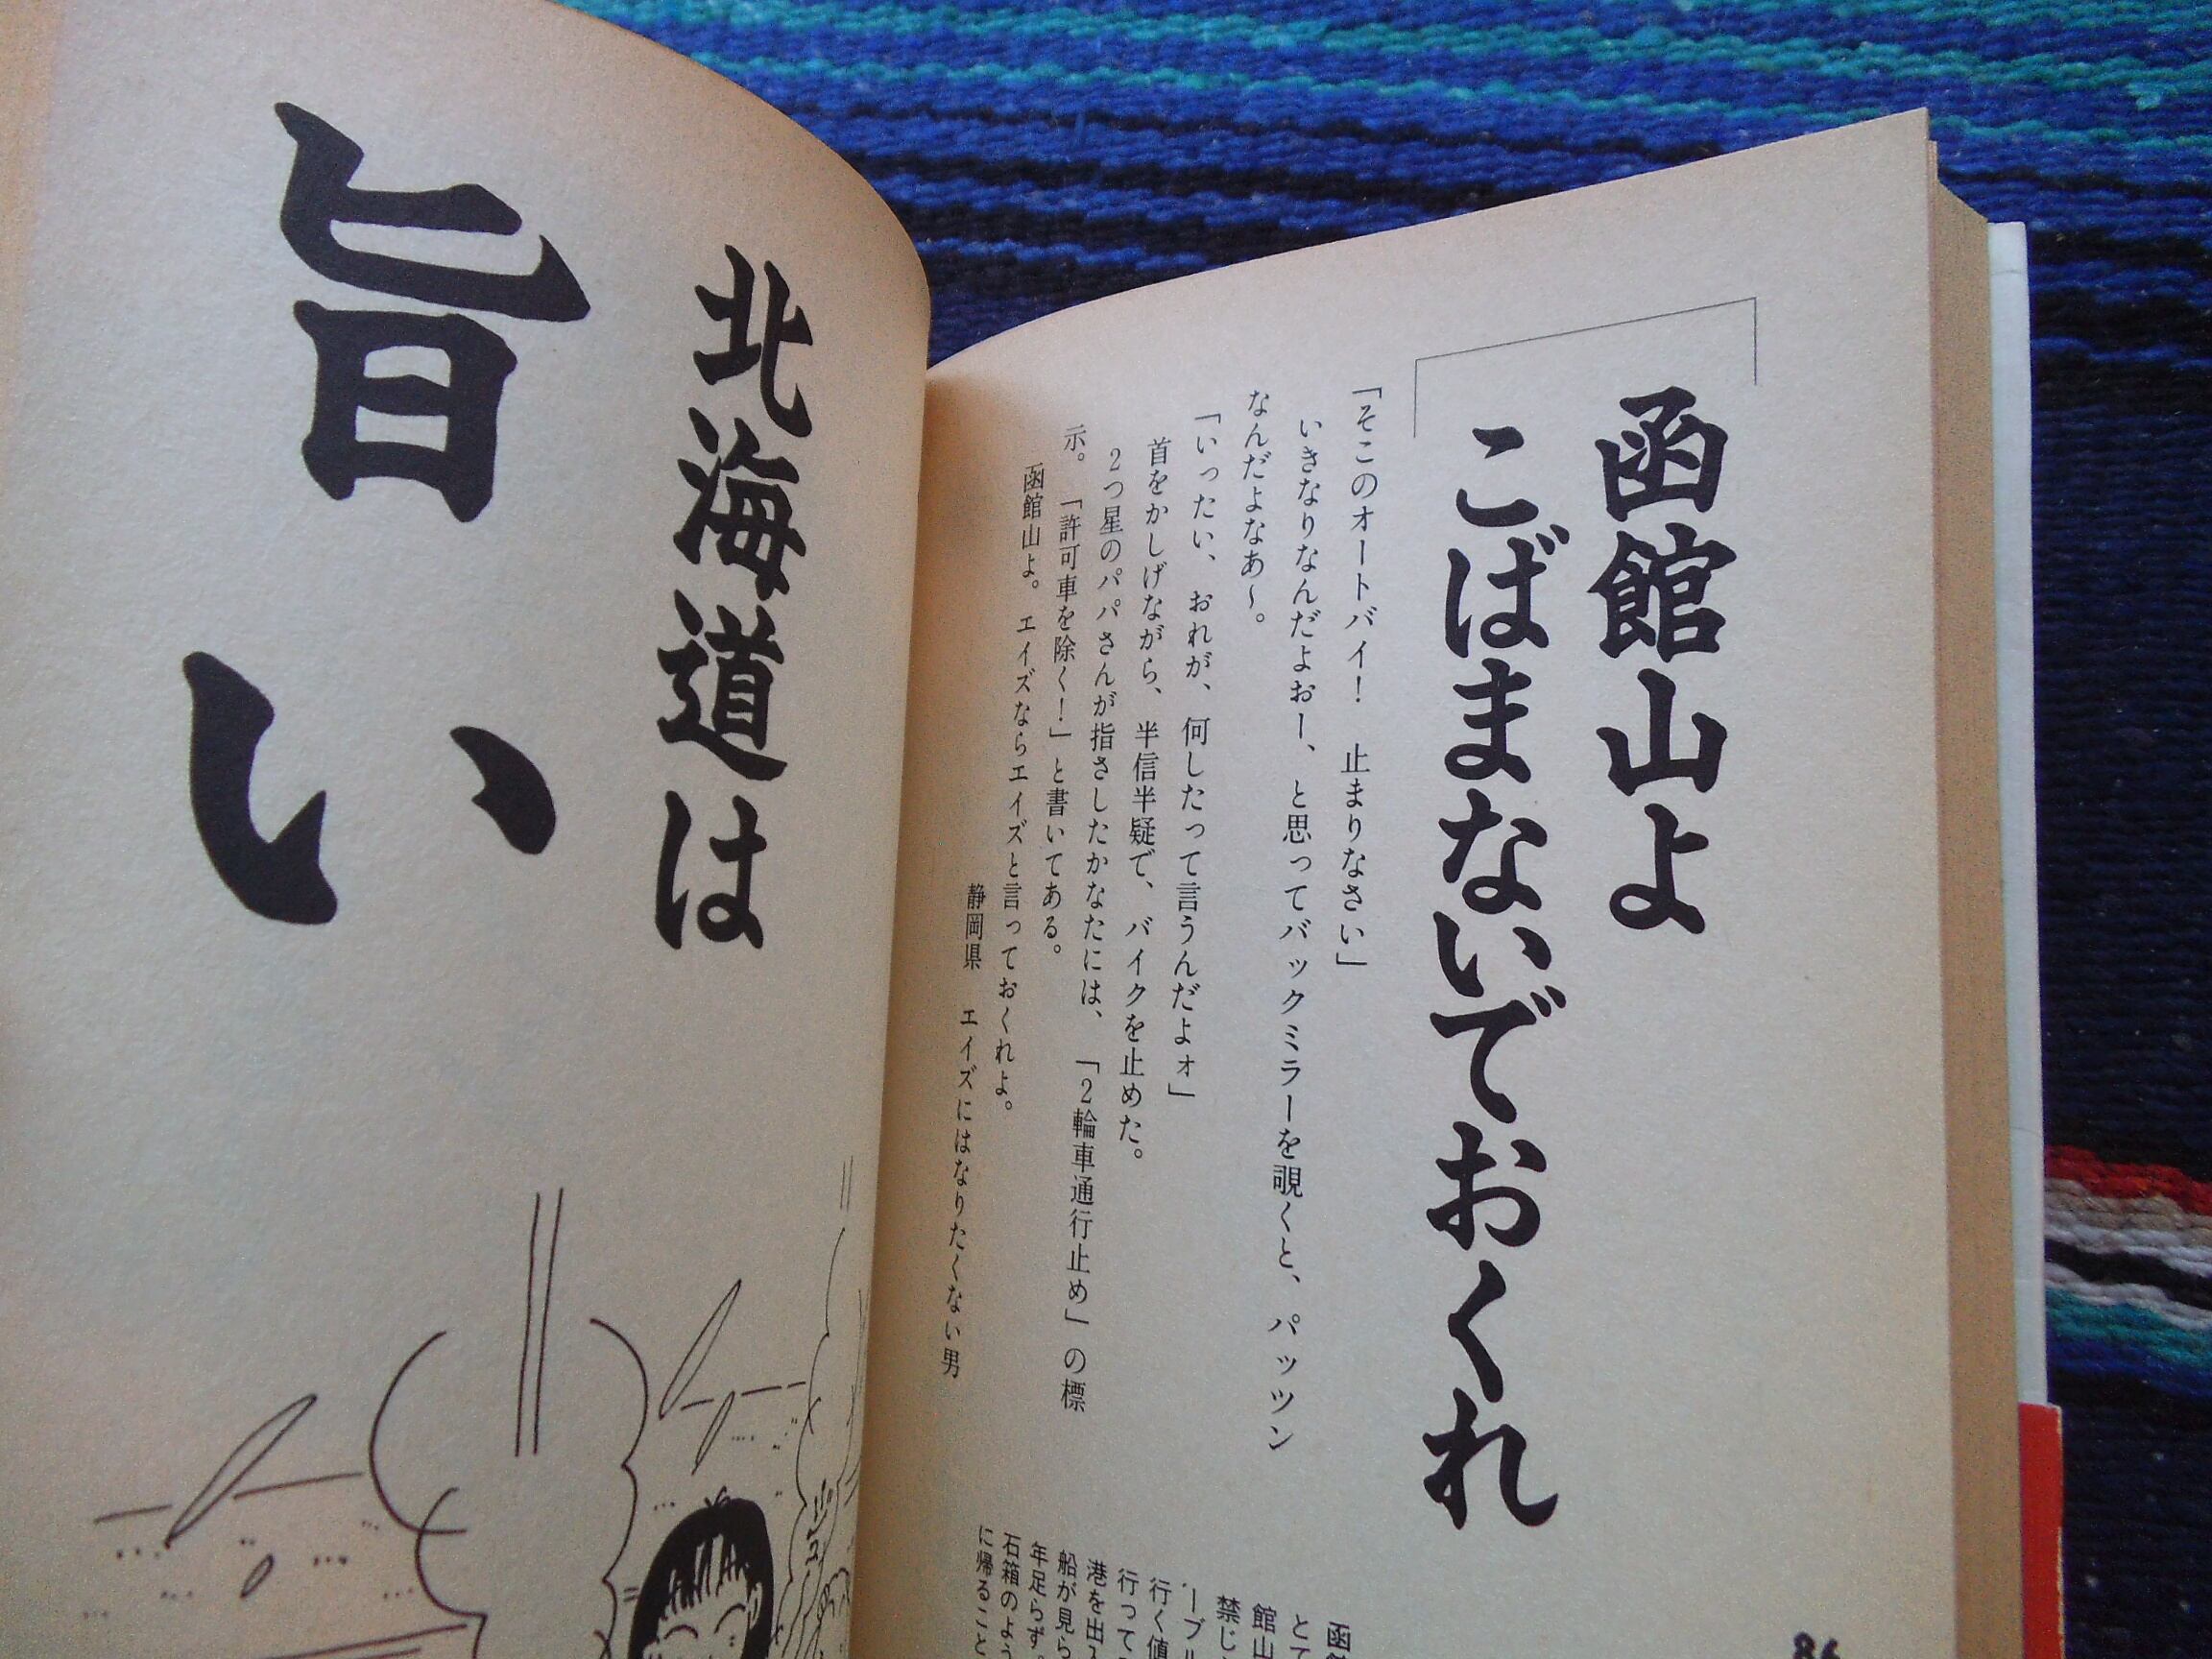 函館山よ
こばまないでおくれ
「そこのオートバイ！　止まりなさい」
いきなりなんだよおー、と思ってバックミラーを覗くと、パッツン
なんだよなあ〜。
「いったい、おれが、何したって言うんだよォ」
首をかしげながら、半信半疑で、バイクを止めた。
2つ星のパパさんが指さしたかなたには、「2輪車通行止め」の標
示。「許可車を除く！」と書いてある。
函館山よ。エイズならエイズと言っておくれよ。
静岡県　エイズにはなりたくない男
函館
とて
禁じ
館山
ーブル
行く値
行って
港を出入
船が見ら
年足らず。
石箱のよう
に帰ること
86
北海道は
旨い